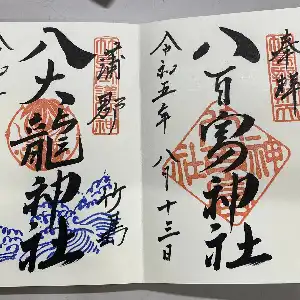 奉拝
八百富神社
令和五年 八月十三日
蒲郡
八大龍神社
竹島
令和